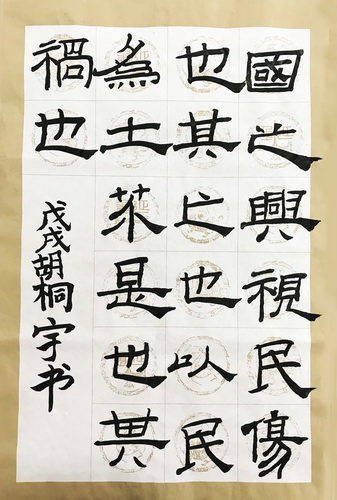 國之興視民傷
也其亡也以民
為土芥是也其
禍也
戊戌胡桐宇书